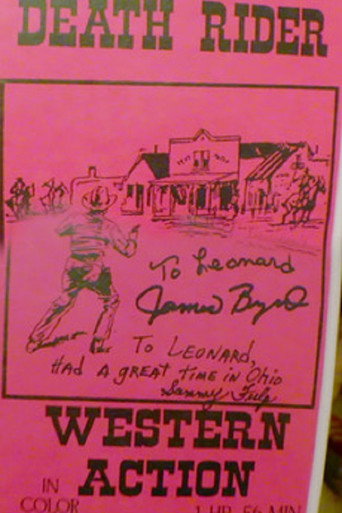 DEATH RIDER
To Leonard
James Byrd
TO LEONARD,
HAD A GREAT TIME IN Ohio
Sammy
WESTERN
ACTION
IN
COLOR
1 HR. 56 MIN